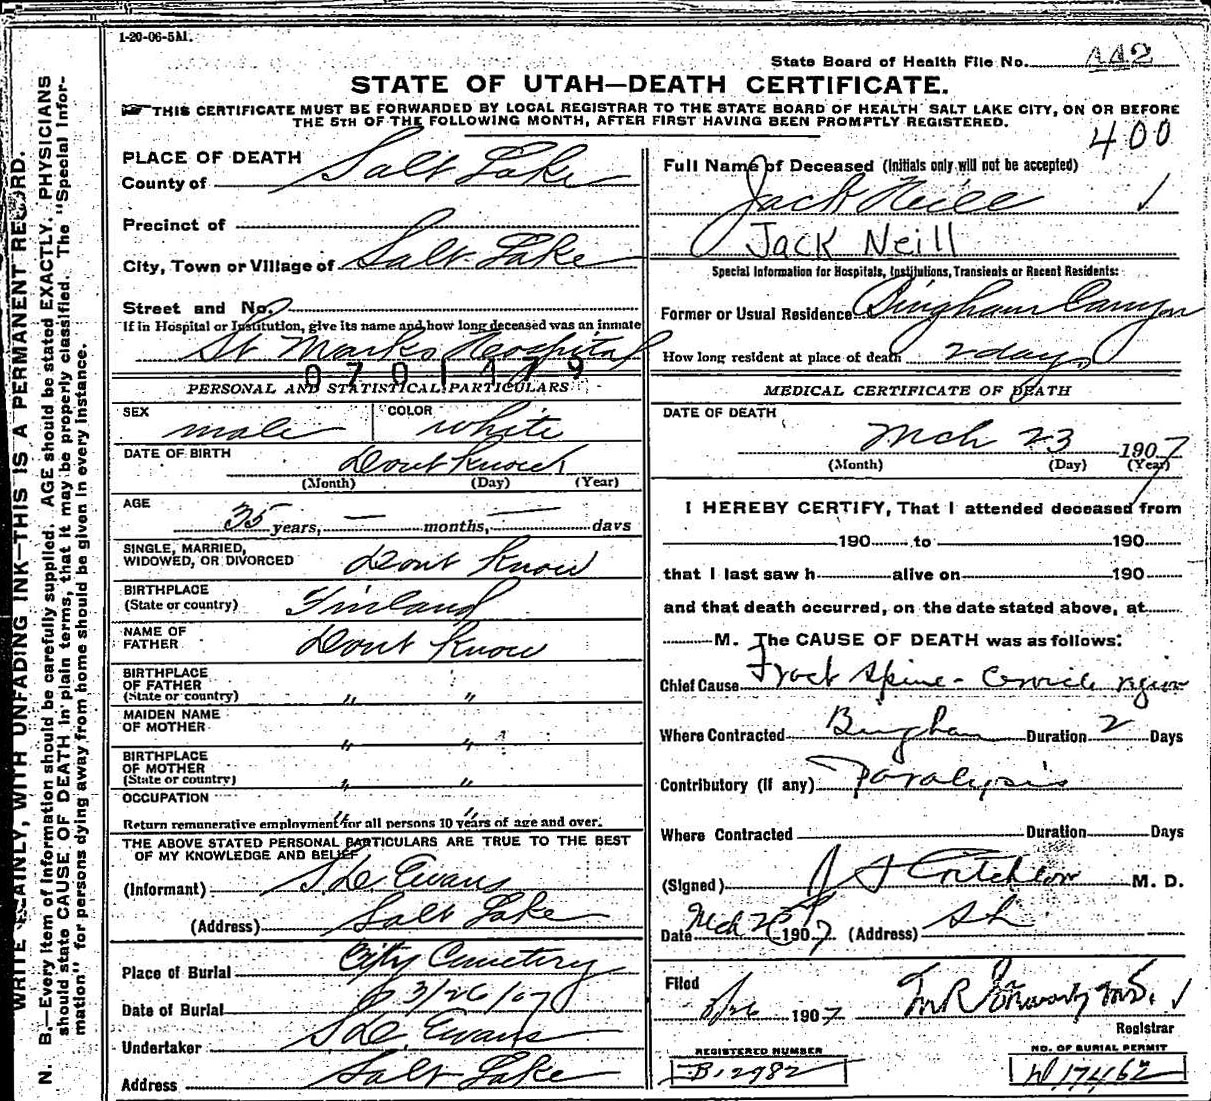 1-20-06-5M.
State Board of Health File No. 442
STATE OF UTAH—DEATH CERTIFICATE.
THIS CERTIFICATE MUST BE FORWARDED BY LOCAL REGISTRAR TO THE STATE BOARD OF HEALTH SALT LAKE CITY, ON OR BEFORE
THE 5TH OF THE FOLLOWING MONTH, AFTER FIRST HAVING BEEN PROMPTLY REGISTERED.
400
PLACE OF DEATH
County of Salt Lake
Precinct of
City, Town or Village of Salt Lake
Street and No.
If in Hospital or Institution, give its name and how long deceased was an inmate
St Marks Hospital
0701479
PERSONAL AND STATISTICAL PARTICULARS
SEX male COLOR white
DATE OF BIRTH Dont Know
(Month) (Day) (Year)
AGE 35 years, — months, — days
SINGLE, MARRIED,
WIDOWED, OR DIVORCED Dont Know
BIRTHPLACE
(State or country) Finland
NAME OF
FATHER Dont Know
BIRTHPLACE
OF FATHER
(State or country) " "
MAIDEN NAME
OF MOTHER " "
BIRTHPLACE
OF MOTHER
(State or country) " "
OCCUPATION " "
Return remunerative employment for all persons 10 years of age and over.
THE ABOVE STATED PERSONAL PARTICULARS ARE TRUE TO THE BEST
OF MY KNOWLEDGE AND BELIEF
(Informant) S. D. Evans
(Address) Salt Lake
Place of Burial City Cemetery
Date of Burial 3/26/07
Undertaker S. D. Evans
Address Salt Lake
Full Name of Deceased (Initials only will not be accepted)
Jack Neill ✓
Jack Neill
Special Information for Hospitals, Institutions, Transients or Recent Residents:
Former or Usual Residence Bingham Canyon
How long resident at place of death 2 days
MEDICAL CERTIFICATE OF DEATH
DATE OF DEATH
Mch 23 1907
(Month) (Day) (Year)
I HEREBY CERTIFY, That I attended deceased from
190 to 190
that I last saw h alive on 190
and that death occurred, on the date stated above, at
M. The CAUSE OF DEATH was as follows:
Chief Cause Fract Spine - Cervicle region
Where Contracted Bingham Duration 2 Days
Contributory (if any) Paralysis
Where Contracted Duration Days
(Signed) J S Critchlow M. D.
Date Mch 25 1907 (Address) S L
Filed
3/26 1907 M.D. ✓
Registrar
REGISTERED NUMBER
B-2982
NO. OF BURIAL PERMIT
W 17462
WRITE PLAINLY, WITH UNFADING INK—THIS IS A PERMANENT RECORD.
N. B.—Every item of information should be carefully supplied. AGE should be stated EXACTLY. PHYSICIANS
should state CAUSE OF DEATH in plain terms, that it may be properly classified. The "Special Infor-
mation" for persons dying away from home should be given in every instance.